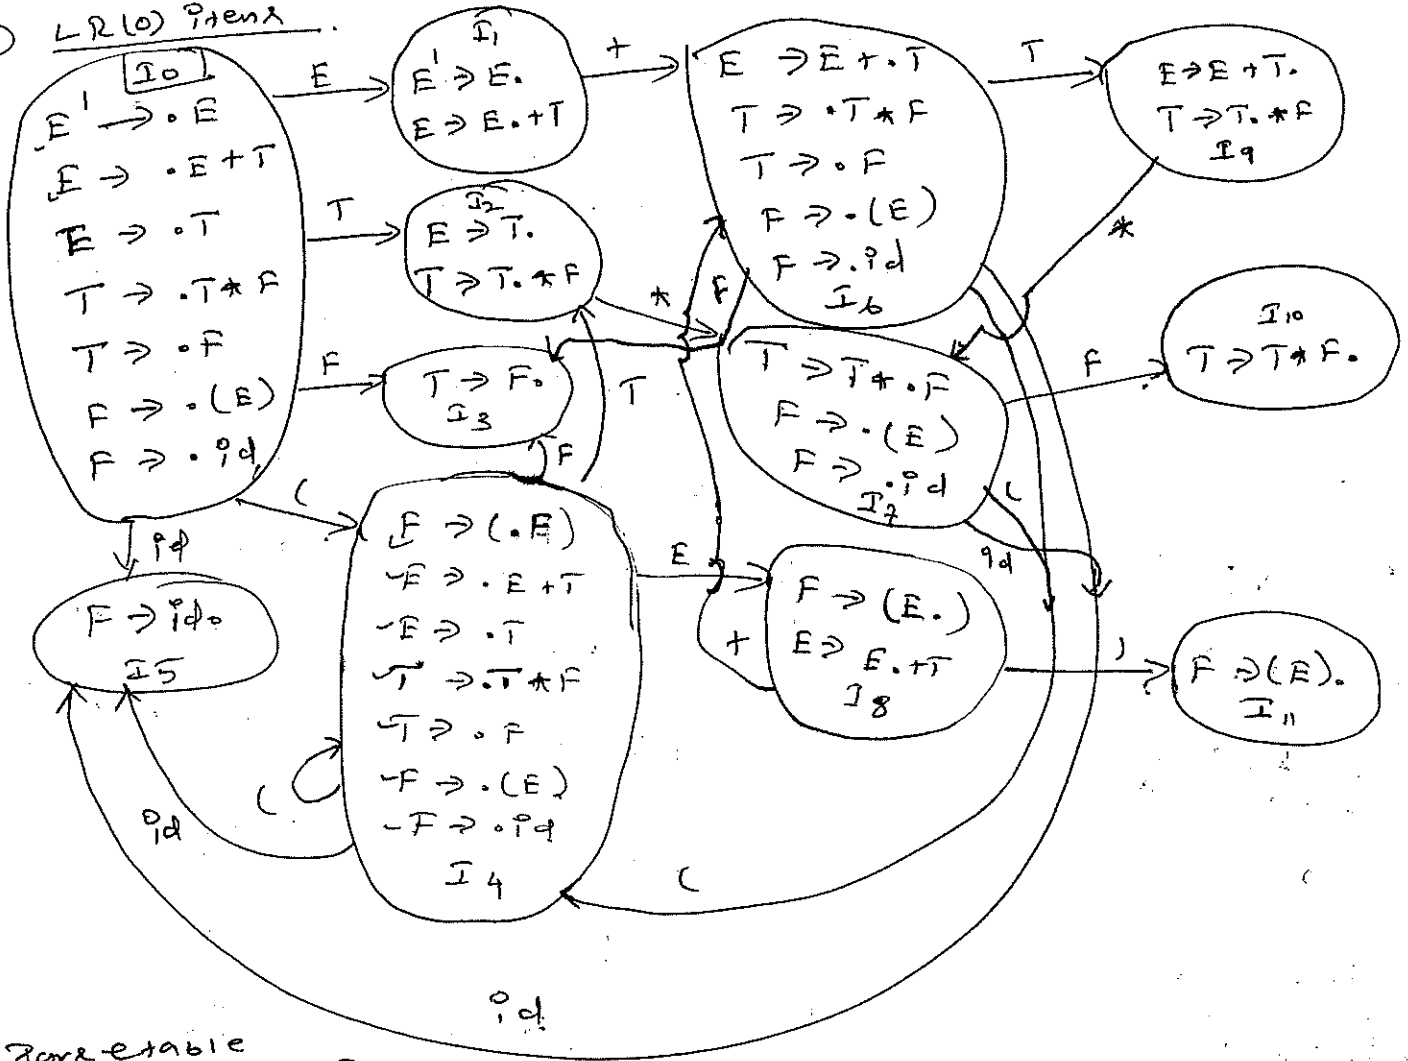 LR(0) items.
I0
E' → .E
E → .E + T
E → .T
T → .T * F
T → .F
F → .(E)
F → .id
E
I1
E' → E.
E → E.+T
+
E → E + .T
T → .T * F
T → .F
F → .(E)
F → .id
I6
T
E → E + T.
T → T. * F
I9
T
I2
E → T.
T → T. * F
*
F
*
F
T → F.
I3
T
T → T * .F
F → .(E)
F → .id
I7
F
I10
T → T * F.
F
(
id
F → id.
I5
F → (.E)
E → .E + T
E → .T
T → .T * F
T → .F
F → .(E)
F → .id
I4
E
(
id
+
F → (E.)
E →
E.+T
I8
)
F → (E).
I11
(
id
(
id
Parse table